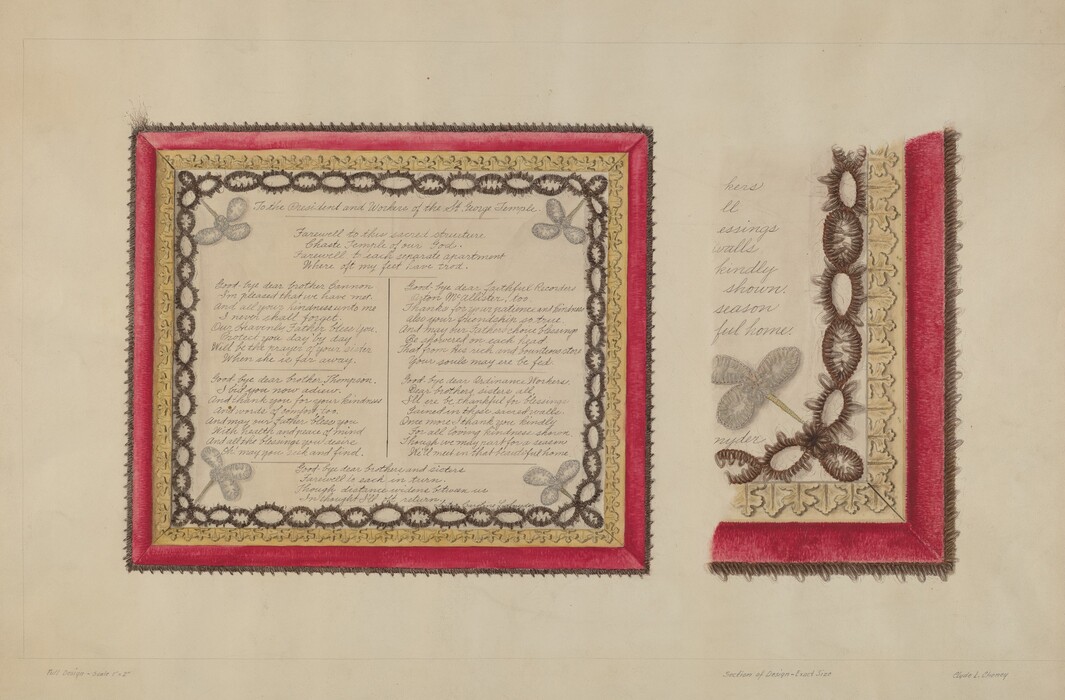 To the President and Workers of the St George Temple.
Farewell to this sacred structure
Chaste Temple of our God.
Farewell to each separate apartment
Where oft my feet have trod.
Good bye dear brother Cannon
I'm pleased that we have met.
And all your kindness unto me
I never shall forget.
Our Heavenly Father bless you.
Protect you day by day
Will be the prayer of your sister
When she is far away.
Good bye dear brother Thompson.
I bid you now adieu.
And thank you for your kindness
And words of comfort too.
And may our Father bless you
With health and peace of mind
And all the blessings you desire
may you seek and find.
Good bye dear faithful Recorder
McAllister, too
Thanks for your patience and kindness
Always friendship so true
And may our Father's choice blessings
Be showered on each head
That from his rich and bounteous store
Your souls may ere be fed.
Good bye dear Ordinance Workers.
Dear brothers sisters all
I'll ere be thankful for blessings
Gained in those sacred walls.
Once more I thank you kindly
For all loving kindness shown.
Though we may part for a season
We'll meet in that beautiful home
Good bye dear brothers and sisters
Farewell to each in turn.
Though distance widens between us
In thought I'll oft return.
kers
ll
essings
walls
kindly
shown.
season
ful home.
nyder
Full Design - Scale
Section of Design - Exact Size
Clyde L. Cheney